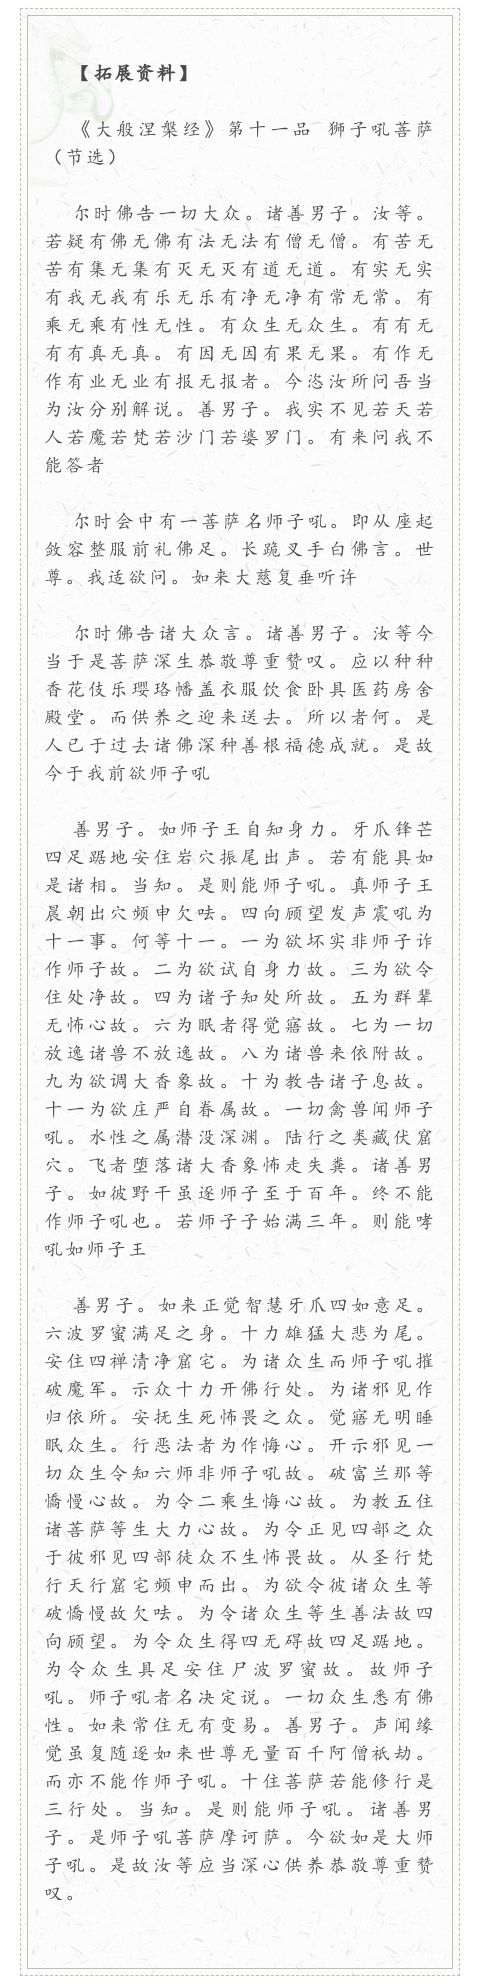 【拓展资料】
《大般涅槃经》第十一品 狮子吼菩萨
（节选）
尔时佛告一切大众。诸善男子。汝等。
若疑有佛无佛有法无法有僧无僧。有苦无
苦有集无集有灭无灭有道无道。有实无实
有我无我有乐无乐有净无净有常无常。有
乘无乘有性无性。有众生无众生。有有无
有有真无真。有因无因有果无果。有作无
作有业无业有报无报者。今恣汝所问吾当
为汝分别解说。善男子。我实不见若天若
人若魔若梵若沙门若婆罗门。有来问我不
能答者
尔时会中有一菩萨名师子吼。即从座起
敛容整服前礼佛足。长跪叉手白佛言。世
尊。我适欲问。如来大慈复垂听许
尔时佛告诸大众言。诸善男子。汝等今
当于是菩萨深生恭敬尊重赞叹。应以种种
香花伎乐璎珞幡盖衣服饮食卧具医药房舍
殿堂。而供养之迎来送去。所以者何。是
人已于过去诸佛深种善根福德成就。是故
今于我前欲师子吼
善男子。如师子王自知身力。牙爪锋芒
四足踞地安住岩穴振尾出声。若有能具如
是诸相。当知。是则能师子吼。真师子王
晨朝出穴频申欠呿。四向顾望发声震吼为
十一事。何等十一。一为欲坏实非师子诈
作师子故。二为欲试自身力故。三为欲令
住处净故。四为诸子知处所故。五为群辈
无怖心故。六为眠者得觉寤故。七为一切
放逸诸兽不放逸故。八为诸兽来依附故。
九为欲调大香象故。十为教告诸子息故。
十一为欲庄严自眷属故。一切禽兽闻师子
吼。水性之属潜没深渊。陆行之类藏伏窟
穴。飞者堕落诸大香象怖走失粪。诸善男
子。如彼野干虽逐师子至于百年。终不能
作师子吼也。若师子子始满三年。则能哮
吼如师子王
善男子。如来正觉智慧牙爪四如意足。
六波罗蜜满足之身。十力雄猛大悲为尾。
安住四禅清净窟宅。为诸众生而师子吼摧
破魔军。示众十力开佛行处。为诸邪见作
归依所。安抚生死怖畏之众。觉寤无明睡
眠众生。行恶法者为作悔心。开示邪见一
切众生令知六师非师子吼故。破富兰那等
憍慢心故。为令二乘生悔心故。为教五住
诸菩萨等生大力心故。为令正见四部之众
于彼邪见四部徒众不生怖畏故。从圣行梵
行天行窟宅频申而出。为欲令彼诸众生等
破憍慢故欠呿。为令诸众生等生善法故四
向顾望。为令众生得四无碍故四足踞地。
为令众生具足安住尸波罗蜜故。故师子
吼。师子吼者名决定说。一切众生悉有佛
性。如来常住无有变易。善男子。声闻缘
觉虽复随逐如来世尊无量百千阿僧祇劫。
而亦不能作师子吼。十住菩萨若能修行是
三行处。当知。是则能师子吼。诸善男
子。是师子吼菩萨摩诃萨。今欲如是大师
子吼。是故汝等应当深心供养恭敬尊重赞
叹。